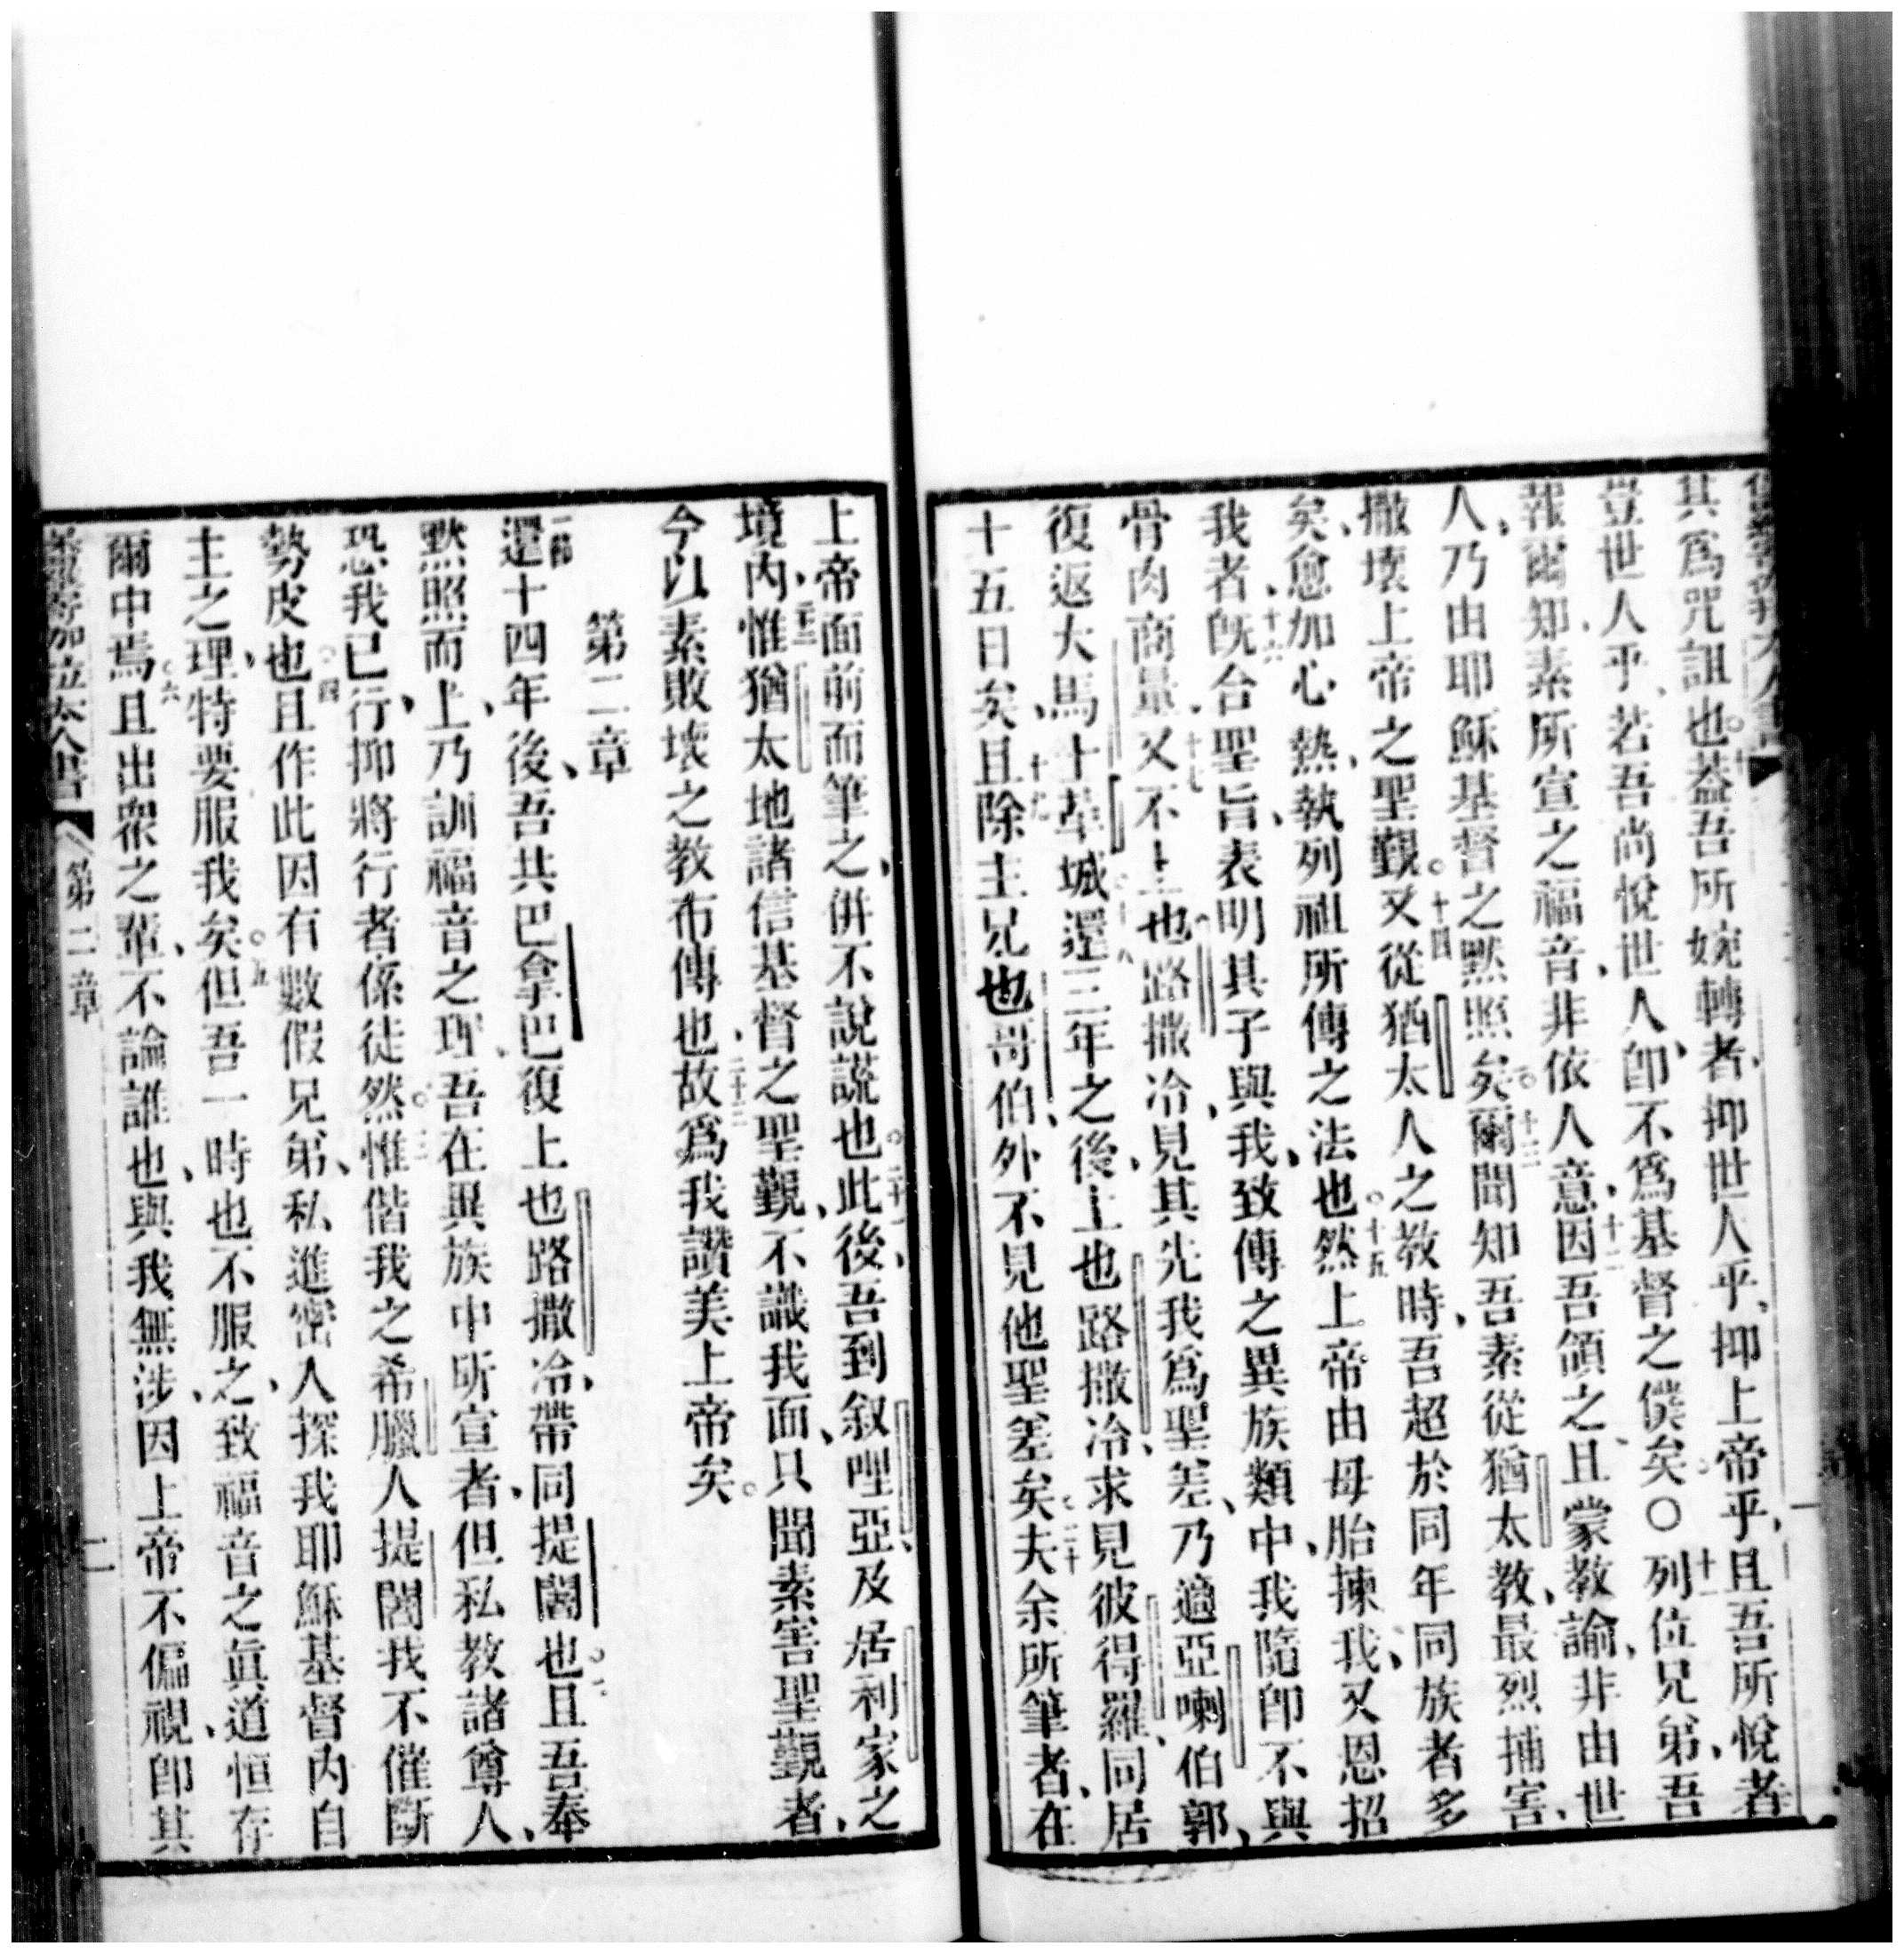 其爲咒詛也。葢吾所婉轉者、抑世人乎、抑上帝乎、且吾所悅者
豈世人乎、若吾尚悅世人、卽不爲基督之僕矣。〇十一列位兄弟、吾
報爾知、素所宣之福音、非依人意、十二因吾領之、且蒙教諭、非由世
人、乃由耶穌基督之默照矣。十三爾聞知吾素從猶太教、最烈捕害、
撒壞上帝之聖觀。十四又從猶太人之教時、吾超於同年同族者多
矣、愈加心熱、執列祖所傳之法也。十五然上帝由母胎揀我、又恩招
我者、十六旣合聖旨、表明其子與我、致傳之異族類中、我隨卽不與
骨肉商量、十七又不上也路撒冷、見其先我爲聖差、乃適亞喇伯郭、
復返大馬士革城。十八還三年之後、上也路撒冷、求見彼得羅、同居
十五日矣、十九且除主兄也哥伯、外不見他聖差矣。二十夫余所筆者、在
上帝面前而筆之、併不說謊也。二十一此後、吾到叙哩亞、及居利家之
境內、二十二惟猶太地諸信基督之聖觀、不識我面、只聞素害聖觀者、
今以素敗壞之教布傳也、二十三故爲我讚美上帝矣。
第二章
一節還十四年後、吾共巴拿巴復上也路撒冷、帶同提闍也。二且吾奉
默照而上、乃訓福音之理、吾在異族中所宣者、但私教諸尊人、
恐我已行、抑將行者係徒然。三惟偕我之希臘人提闍、我不催斷
勢皮也。四且作此因有數假兄弟、私進密人探我耶穌基督內自
主之理、特要服我矣。五但吾一時也不服之、致福音之眞道恒存
爾中焉。六且出衆之輩、不論誰也、與我無涉、因上帝不偏視、卽其
第二章
二
一